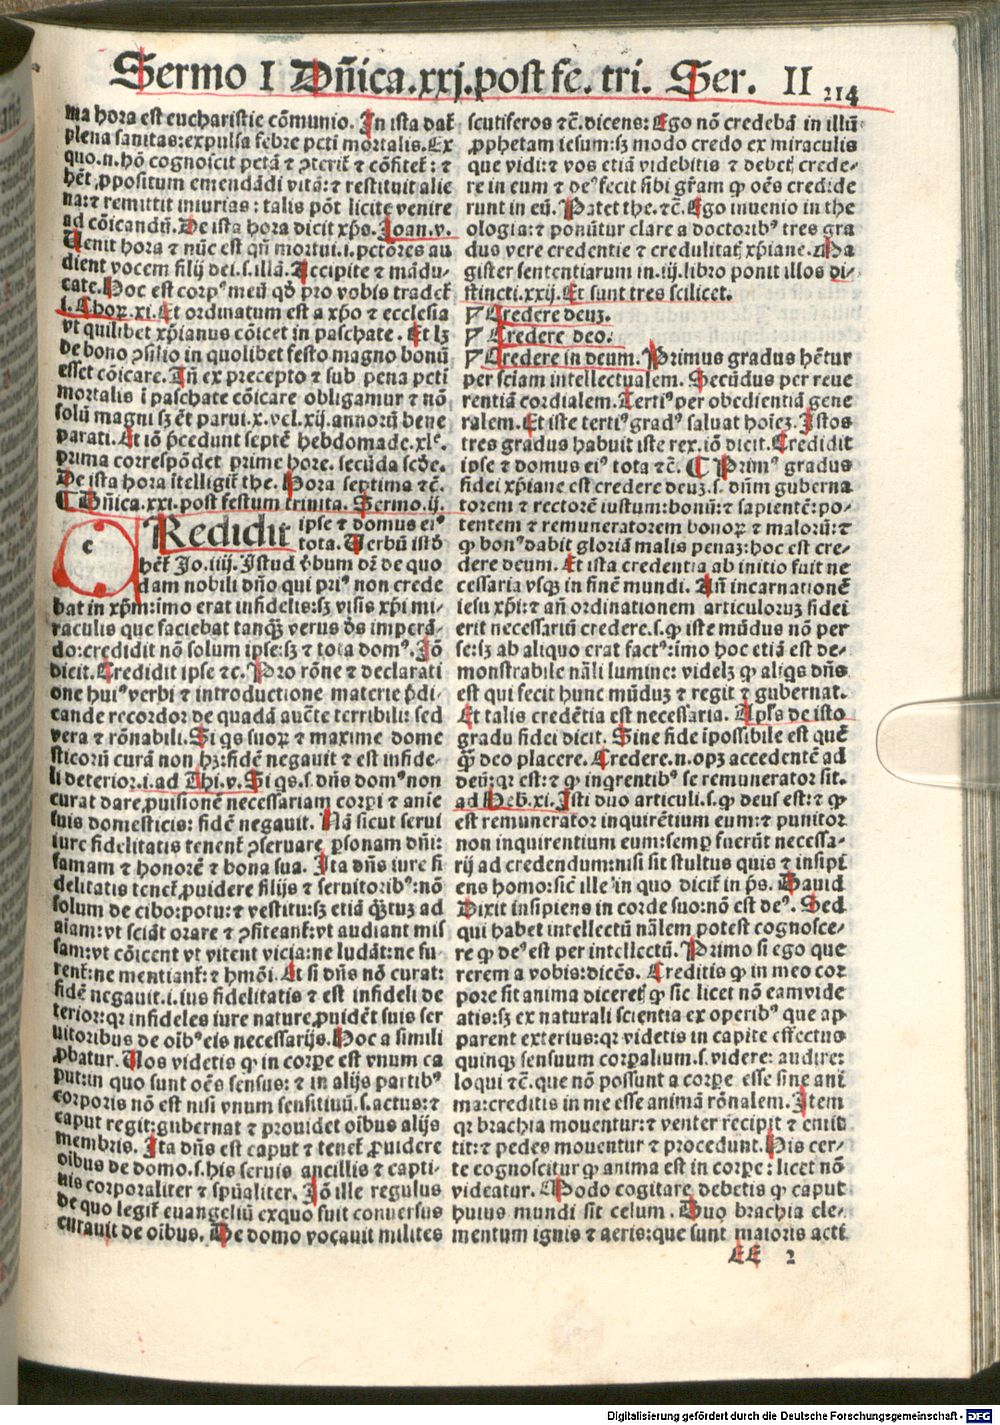 Sermo I Dñica.xxj.post fe. tri. Ser. II
214
ma hora est eucharistie cõmunio. In ista daƭ
plena sanitas: expulsa febre pcti mortalis. Ex
quo.n. hõ cognoscit petã ⁊ ↄteriƭ ⁊ cõfiteƭ: ⁊
hẽt ꝓpositum emendãdi vitã: ⁊ restituit alie
na: ⁊ remittit iniurias: talis põt licite venire
ad cõicandũ. De ista hora dicit xp̃s. Joan.v.
Uenit hora ⁊ nũc est qñ mortui.i.pctores au
dient vocem filij dei.s.illã. Accipite ⁊ mãdu-
cate. Hoc est corpꝰ meũ qđ pro vobis tradeƭ
i. Choꝝ.xi. Et ordinatum est a xp̃o ⁊ ecclesia
vt quilibet xp̃ianus cõicet in paschate. Et lꝫ
de bono ↄsilio in quolibet festo magno bonũ
esset cõicare. Tñ ex precepto ⁊ sub pena pcti
mortalis ĩ paschate cõicare obligamur ⁊ nõ
solũ magni sꝫ ẽt parui.x.vel.xij.annorũ bene
parati. Et iõ p̃cedunt septẽ hebdomade.xlᵉ.
prima correspõdet prime hore. secũda scđe.
De ista hora ĩtelligiƭ the. Hora septima ⁊c̃.
¶ Dñica.xxi.post festum trinita. Sermo.ij.
c
REdidit ipse ⁊ domus eiꝰ
tota. Uerbũ istđ
hẽƭ Jo.iiij. Istud v̓bum dr̃ de quo
dam nobili dño qui priꝰ non crede
bat in xp̃m: imo erat infidelis: sꝫ visis xp̃i mi-
raculis que faciebat tanqꝫ̃ verus d̓s imperã-
do: credidit nõ solum ipse: sꝫ ⁊ tota domꝰ. Iõ
dicit. Credidit ipse ⁊c. Pro rõne ⁊ declarati
one huiꝰ verbi ⁊ introductione materie p̃di-
cande recordor de quadã aucte terribili: sed
vera ⁊ rõnabili. Si qs suoꝝ ⁊ maxime dome
sticorũ curã non hꝫ: fidẽ negauit ⁊ est infide-
li deterior.i.ad Thi.v. Si qs.s.dñs domꝰ non
curat dare ꝓuisionẽ necessariam corpi ⁊ anie
suis domesticis: fidẽ negauit. Nã sicut serui
iure fidelitatis tenenƭ ↄseruare ꝑsonam dñi:
famam ⁊ honorẽ ⁊ bona sua. Ita dñs iure fi
delitatis teneƭ ꝓuidere filijs ⁊ seruitoribꝰ: nõ
solum de cibo: potu: ⁊ vestitu: sꝫ etiã qꝫ̃tuꝫ ad
aiam: vt sciãt orare ⁊ ↄfiteanƭ: vt audiant mis
sam: vt cõicent vt vitent vicia: ne ludãt: ne fu
renƭ: ne mentianƭ: ⁊ hmõi. At si dñs nõ curat:
fidẽ negauit.i.ius fidelitatis ⁊ est infideli de
terior: qꝛ infideles iure nature ꝓuidẽt suis ser
uitoribus de oibꝰ eis necessarijs. Hoc a simili
ꝓbatur. Uos videtis ꝙ in corpe est vnum ca
put: in quo sunt oẽs sensus: ⁊ in alijs partibꝰ
corporis nõ est nisi vnum sensitiuũ.s.actus: ⁊
caput regit: gubernat ⁊ prouidet oibus alijs
membris. Ita dñs est caput ⁊ teneƭ ꝓuidere
oibus de domo.s.his seruis ancillis ⁊ capti-
uis corporaliter ⁊ spũaliter. Iõ ille regulus
de quo legiƭ euangeliũ exquo fuit conuersus
curauit de oibus. De domo vocauit milites
scutiferos ⁊c̃. dicens: Ego nõ credebã in illũ
ꝓphetam iesum: sꝫ modo credo ex miraculis
que vidi: ⁊ vos etiã videbitis ⁊ debeƭ crede-
re in eum ⁊ deꝰ fecit sibi gr̃am ꝙ oẽs credide
runt in eũ. Patet the.⁊c̃. Ego inuenio in the
ologia: ⁊ ponũtur clare a doctoribꝰ tres gra
dus vere credentie ⁊ credulitaƭ xp̃iane. Ma
gister sententiarum in.iij.libro ponit illos di-
stincti.xxij. Et sunt tres scilicet.
Credere deuꝫ.
Credere deo.
Credere in deum. Primus gradus hẽtur
per sciam intellectualem. Secũdus per reue
rentiã cordialem. Tertiꝰ per obedientiã gene
ralem. Et iste tertiꝰ gradꝰ saluat hoĩeꝫ. Istos
tres gradus habuit iste rex. iõ dicit. Credidit
ipse ⁊ domus eiꝰ tota ⁊c̃. ¶ Primꝰ gradus
fidei xp̃iane est credere deuꝫ.s. dñm guberna
torem ⁊ rectorẽ iustum: bonũ: ⁊ sapientẽ: po-
tentem ⁊ remuneratorem bonoꝝ ⁊ malorũ: ⁊
ꝙ bonꝰ dabit gloriã malis penaꝫ: hoc est cre-
dere deum. Et ista credentia ab initio fuit ne
cessaria vsqꝫ in finẽ mundi. Añ incarnationẽ
iesu xp̃i: ⁊ añ ordinationem articuloruꝫ fidei
erit necessariũ credere.s.ꝙ iste mũdus nõ per
se: sꝫ ab aliquo erat factꝰ: imo hoc etiã est de-
monstrabile nãli lumine: videlꝫ ꝙ aliqs dñs
est qui fecit hunc mũduꝫ ⁊ regit ⁊ gubernat.
Et talis credẽtia est necessaria. Apl̓s de isto
gradu fidei dicit. Sine fide ĩpossibile est quẽ
qꝫ̃ deo placere. Credere.n.opꝫ accedentẽ ad
deũ: qꝛ est: ⁊ ꝙ inqrentibꝰ se remunerator sit.
ad Heb.xi. Isti duo articuli.s.ꝙ deus est: ⁊ ꝙ
est remunerator inquirẽtium eum: ⁊ punitor
non inquirentium eum: semp fuerũt necessa-
rij ad credendum: nisi sit stultus quis ⁊ insipi
ens homo: sic̃ ille in quo diciƭ in p̃s. Dauid
Dixit insipiens in corde suo: nõ est deꝰ. Sed
qui habet intellectũ nãlem potest cognosce-
re ꝙ deꝰ est per intellectũ. Primo si ego que
rerem a vobis: dicẽs. Creditis ꝙ in meo cor
pore sit anima diceretꝭ ꝙ sic licet nõ eam vide
atis: sꝫ ex naturali scientia ex operibꝰ que ap
parent exterius: qꝛ videtis in capite effectus
quinqꝫ sensuum corpalium.s.videre: audire:
loqui ⁊c̃. que nõ possunt a corpe esse sine ani
ma: creditis in me esse animã rõnalem. Item
qꝛ brachia mouentur: ⁊ venter recipit ⁊ emit
tit: ⁊ pedes mouentur ⁊ procedunt. His cer-
te cognoscitur ꝙ anima est in corpe: licet nõ
videatur. Modo cogitare debetis ꝙ caput
huius mundi sit celum. Duo brachia ele-
mentum ignis ⁊ aeris: que sunt maioris acti
EE 2
Digitalisierung gefördert durch die Deutsche Forschungsgemeinschaft - DFG